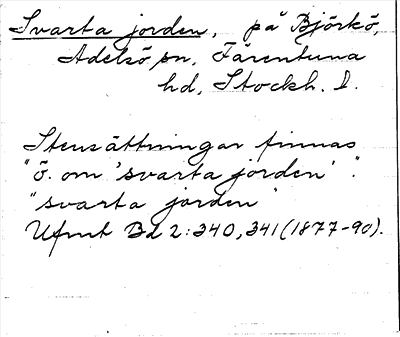 Svarta jorden, på Björkö,
Adelsö sn, Färentuna
hd, Stockh. l.
Stensättningar finnas
"ö. om 'svarta jorden'".
"svarta jorden"
Ufmt Bd 2:340, 341 (1877-90).